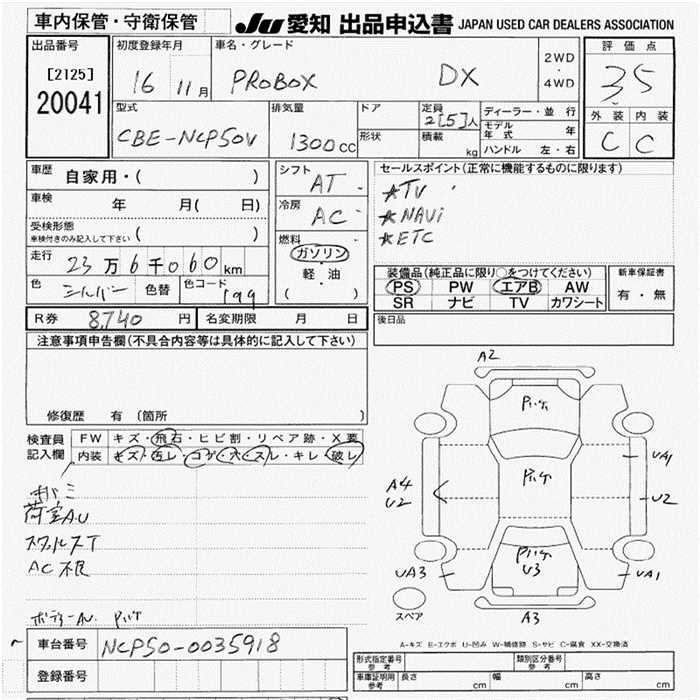 車内保管・守衛保管 JU 愛知 出品申込書 JAPAN USED CAR DEALERS ASSOCIATION
出品番号 初度登録年月 車名・グレード 評価点
[2125] 16 11月 PROBOX DX 2WD・4WD 3.5
20041
型式 排気量 ドア 定員 2[5]人 ディーラー・並行 外装 内装
CBE-NCP50V 1300cc 形状 積載 kg モデル年式 年 C C
ハンドル 左・右
車歴 自家用・( ) シフト AT セールスポイント(正常に機能するものに限ります)
車検 年 月( 日) 冷房 AC ☆TV
☆NAVi
受検形態 ( ) 燃料 ☆ETC
車検付きのみ記入して下さい
走行 23万6千060km ガソリン 装備品(純正品に限り○をつけてください) 新車保証書
軽・油 PS PW エアB AW 有・無
色 シルバー 色替 色コード 199 ( ) SR ナビ TV カワシート
R券 8,740円 名変期限 月 日 後日品
注意事項申告欄(不具合内容等は具体的に記入して下さい)
修復歴 有 (箇所 )
検査員記入欄 FW キズ・飛石・ヒビ割・リペア跡・X要
内装 キズ・汚レ・コゲ・穴・スレ・キレ・破レ
荷室A.U
AC不良
ボデーA.U. Pハゲ
車台番号 NCP50-0035918
登録番号
A2
Pハゲ
UA1
Pハゲ
A4
U2
U2
Pハゲ
U3
UA3
UA1
スペア
A3
A-キズ E-エクボ U-凹み W-補修跡 S-サビ C-腐食 XX-交換済
形式指定番号 参考 類別区分番号 参考
車庫証明用 参考 長さ cm 幅 cm 高さ cm